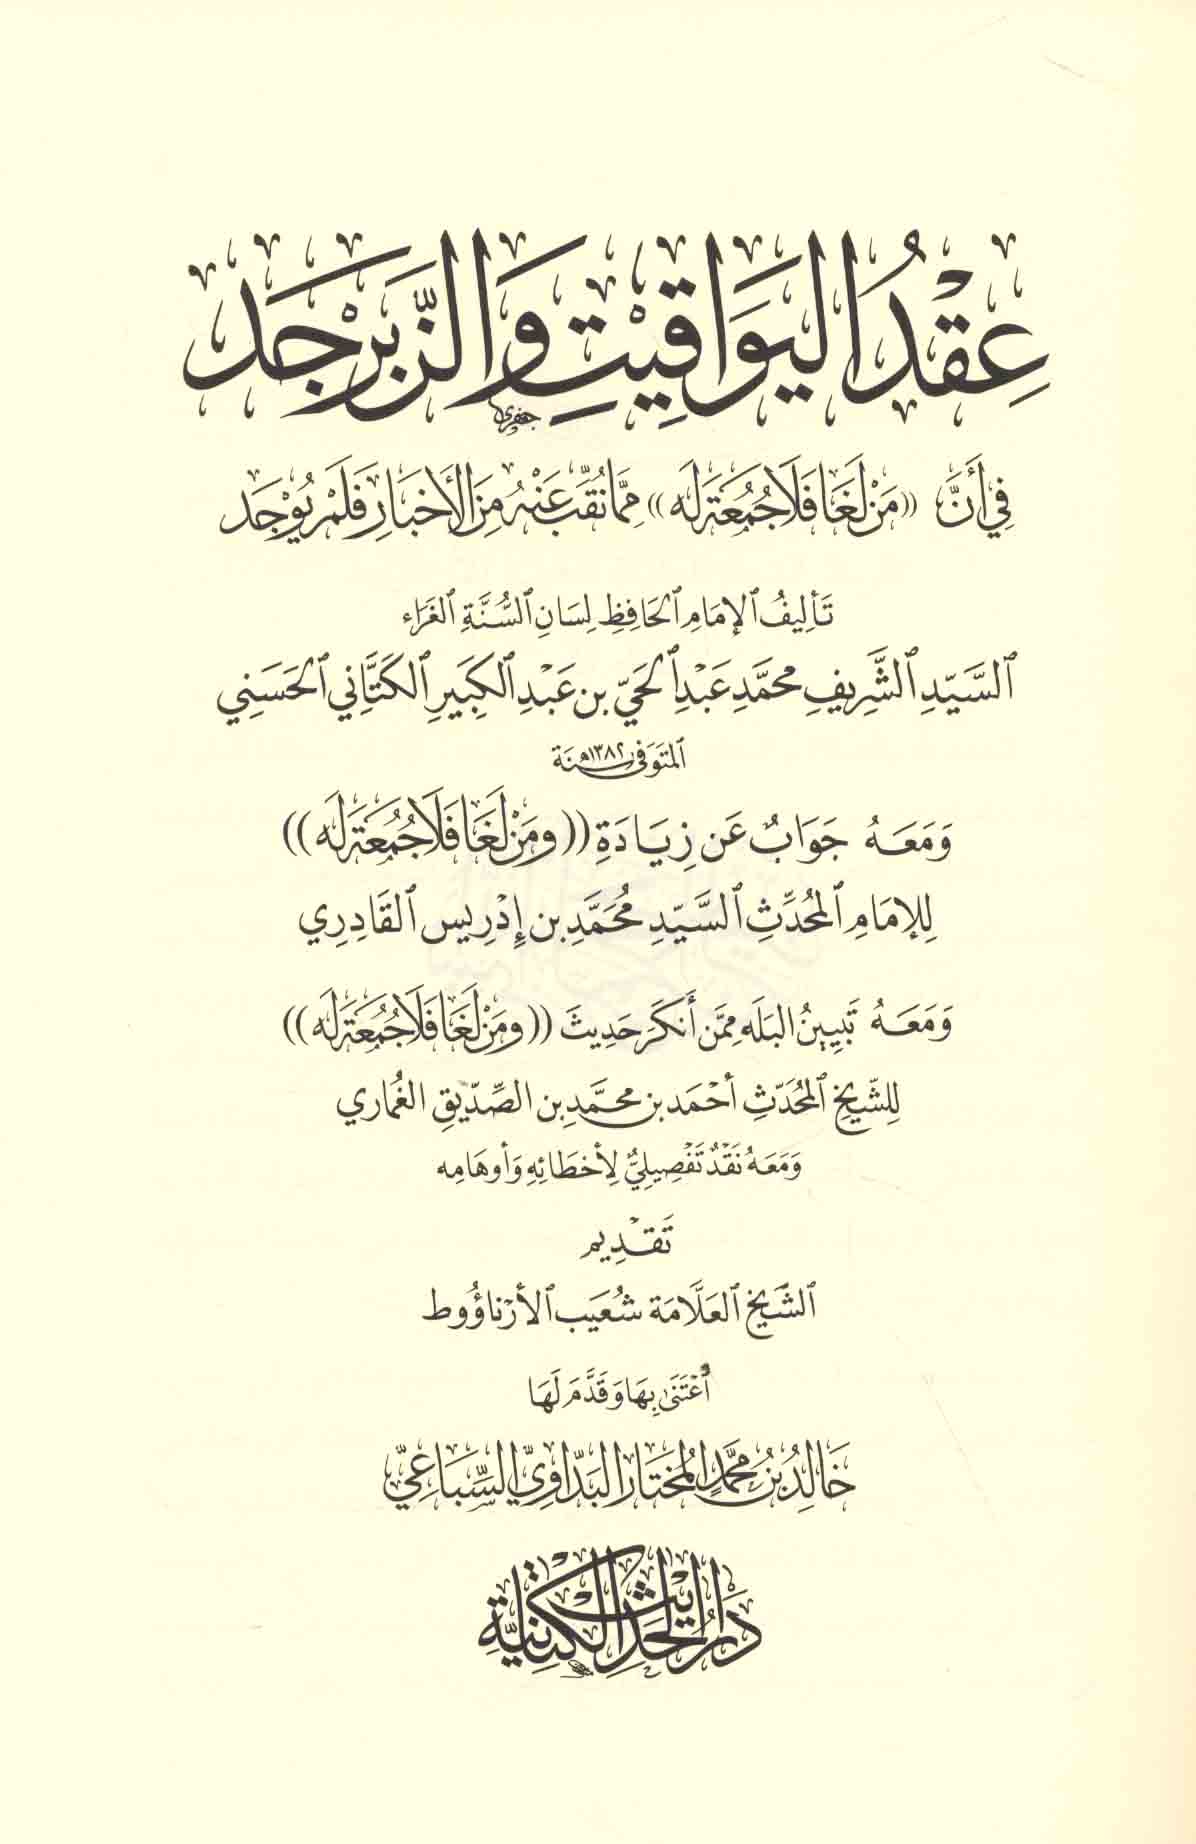 عِقْدُ اليَوَاقِيتِ وَالزَّبَرْجَد
فِي أَنَّ «مَنْ لَغَا فَلَا جُمُعَةَ لَه» مِمَّا نُقِّبَ عَنْهُ مِنَ الأَخبَارِ فَلَمْ يُوْجَد
تَأليفُ الإمَامِ الحَافِظِ لِسَانِ السُّنَّةِ الغَرَاء
السَّيّدِ الشَّرِيفِ محمَّد عَبْدِ الحَيّ بن عَبْدِ الكَبِيرِ الكَتَّاني الحَسَنِي
المتَوَفىٰ سَنة ١٣٨٢هـ
وَمَعَهُ جَوَابٌ عَن زِيَادَةِ ((ومَنْ لَغَا فَلَا جُمُعَةَ لَه))
لِلإمَامِ المُحَدِّثِ السَّيّدِ مُحَمَّد بن إدْرِيس القَادِرِي
وَمَعَهُ تَبيينُ البَلَهِ مِمَّن أَنكَرَ حَدِيثَ ((ومَنْ لَغَا فَلَا جُمُعَةَ لَه))
لِلشّيخِ المُحَدّثِ أحْمَد بن محمَّد بن الصِّدِّيقِ الغُمَاري
وَمَعَهُ نَقْدٌ تَفْصِيلِيٌّ لِأخطَائِهِ وَأوهَامِه
تَقْدِيم
الشَّيخ العَلَّامَة شُعَيب الأرْناؤُوط
اُعْتَنَىٰ بِهَا وَقَدَّمَ لَهَا
خَالِدُ بنُ مُحَمَّدٍ المُختَار البَدَّاوِيّ السِّبَاعِيّ
دَارُ الحَدِيثِ الكَتّانِيَّةِ